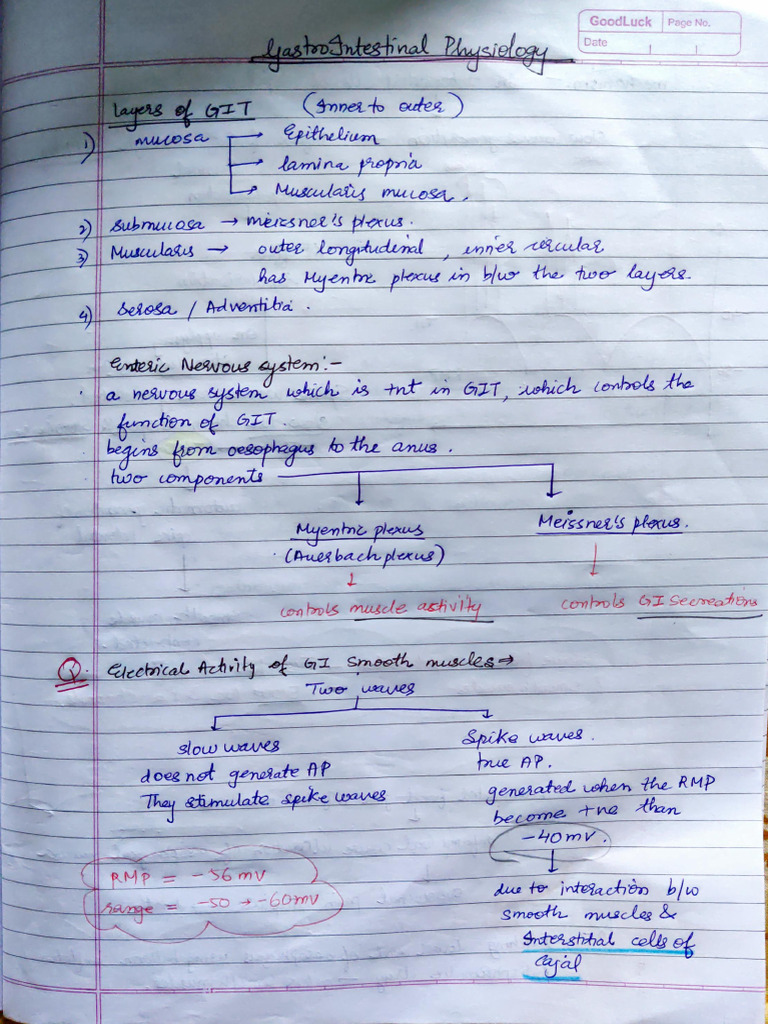 GoodLuck Page No.
Date
GastroIntestinal Physiology
Layers of GIT (Inner to outer)
1) mucosa → Epithelium
→ lamina propria
→ Muscularis mucosa.
2) submucosa → meissner's plexus.
3) Muscularis → outer longitudinal, inner circular
has Myentric plexus in b/w the two layers.
4) Serosa / Adventitia.
Enteric Nervous system:-
a nervous system which is +nt in GIT, which controls the
function of GIT.
begins from oesophagus to the anus.
two components
Myentric plexus Meissner's plexus.
(Auerbach plexus)
controls muscle activity controls GI Secreations
Q. Electrical Activity of GI Smooth muscles →
Two waves
slow waves Spike waves.
does not generate AP true AP.
They stimulate spike waves generated when the RMP
become +ve than
-40mv.
RMP = -56mv
range = -50 → -60mv
due to interaction b/w
smooth muscles &
Interstitial cells of
Cajal